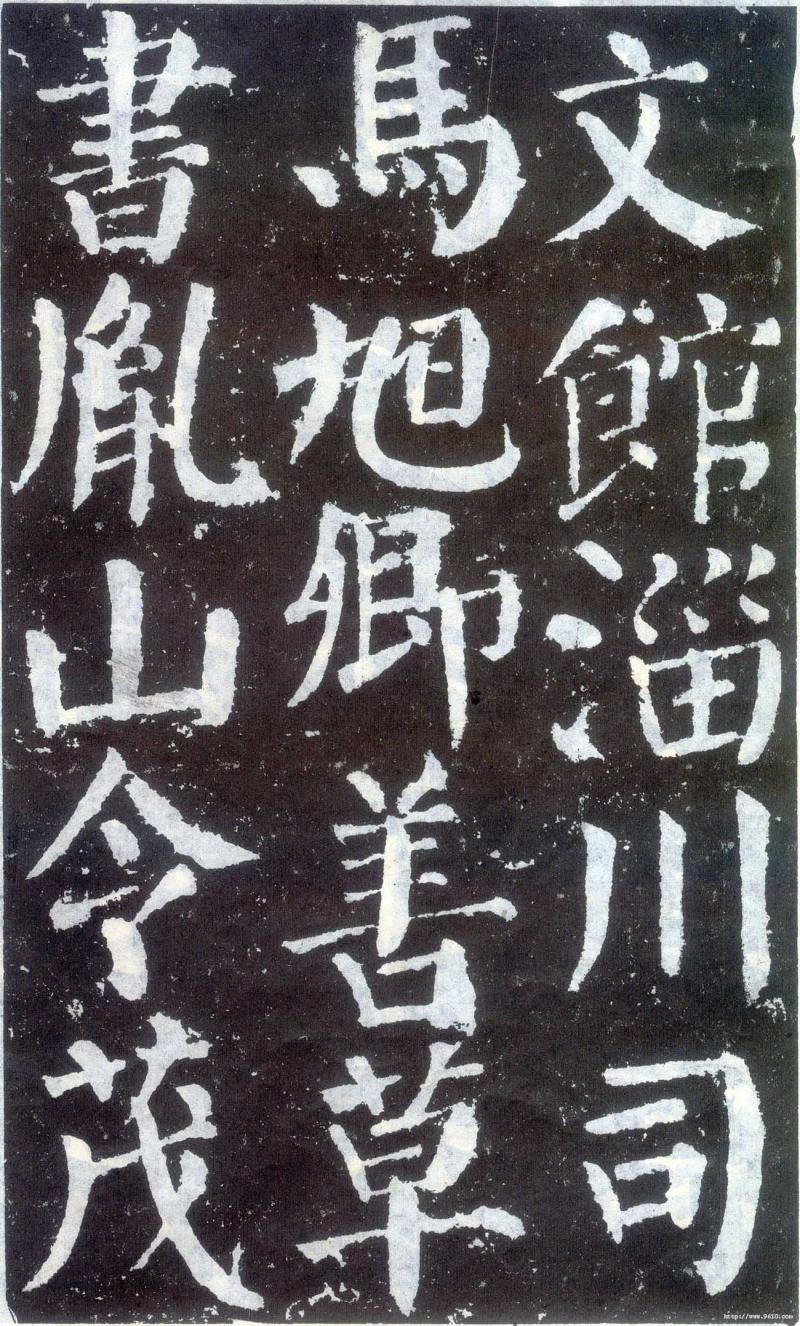 文館淄川司
馬旭卿善草
書胤山令茂
http://www.9610.com